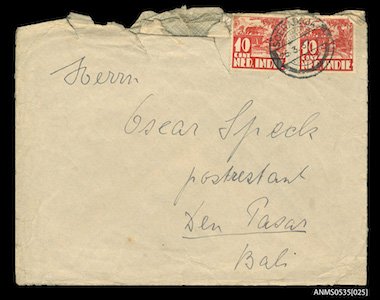 10 CENT NED. INDIE 10 CENT NED. INDIE
Herrn
Oscar Speck
postrestant
Den Pasar
Bali
ANMS0535[025]